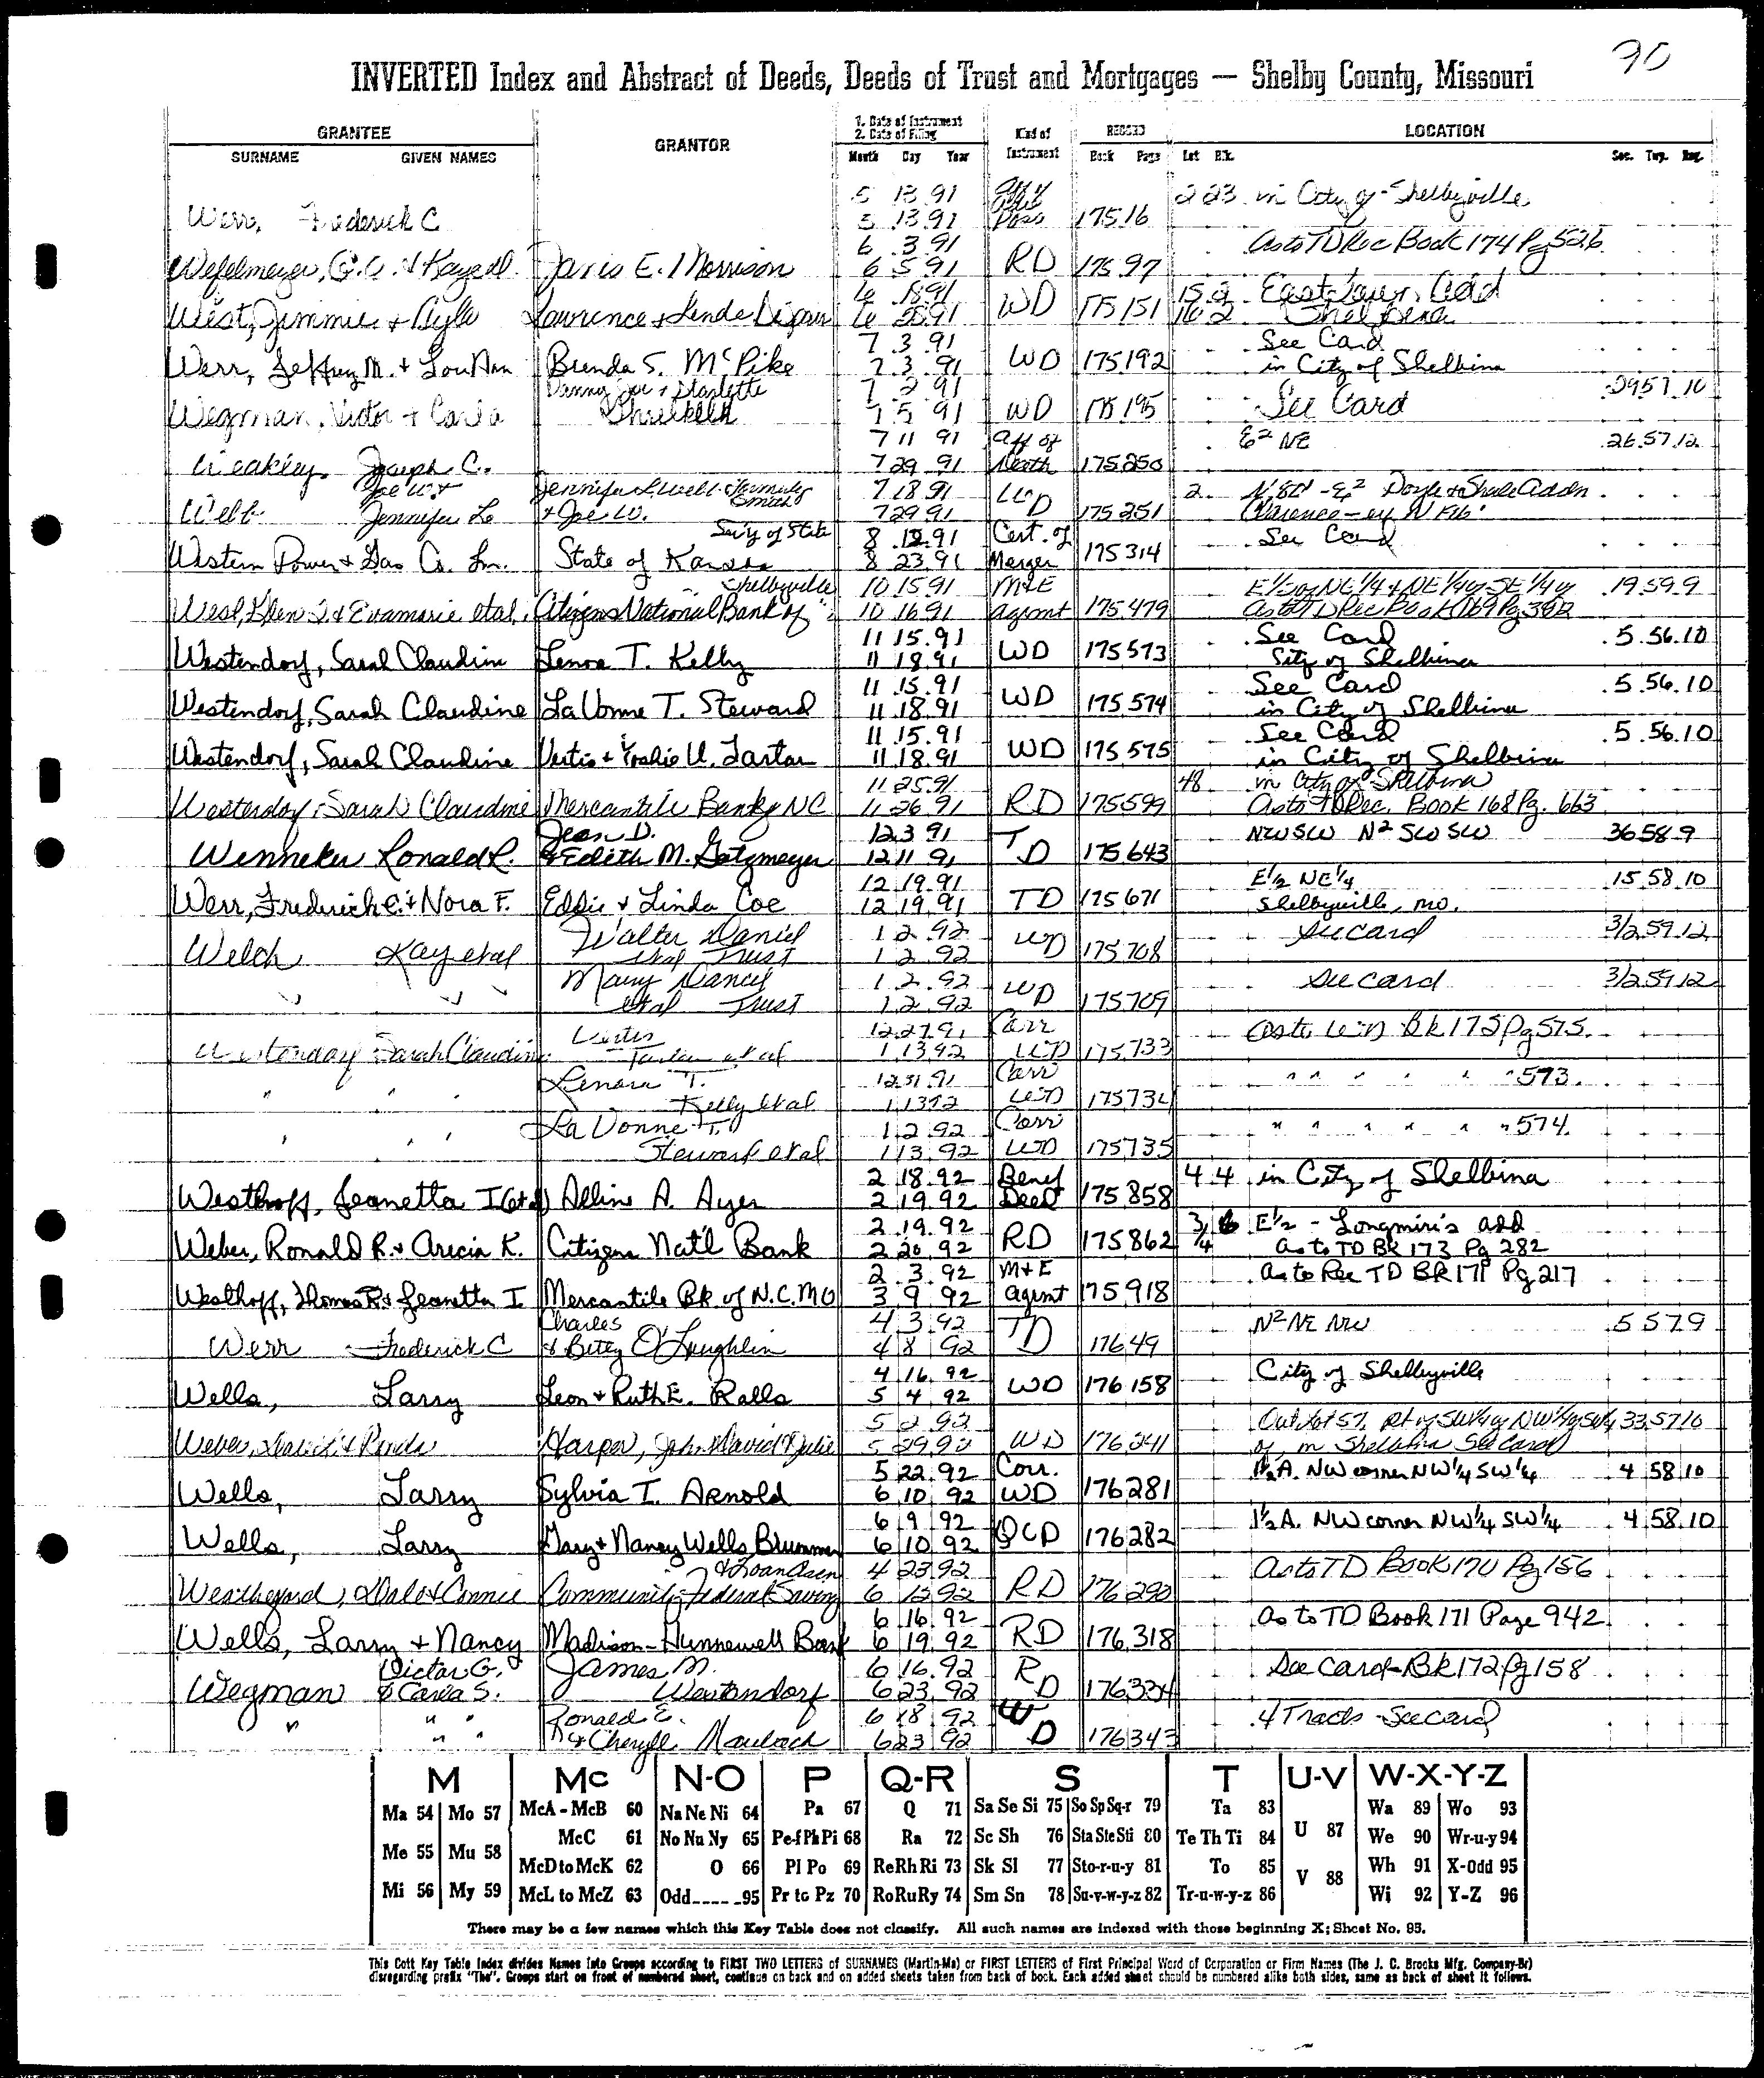 90
INVERTED Index and Abstract of Deeds, Deeds of Trust and Mortgages — Shelby County, Missouri
GRANTEE GRANTOR 1. Date of Instrument 2. Date of Filing Kind of Instrument RECORD LOCATION
SURNAME GIVEN NAMES Month Day Year Book Page Lot Blk. Sec. Twp. Rng.
5 13 91 Aff of 223 in City of Shelbyville
Werr, Frederick C 5 13 91 175 16
6 3 91 As to TD Rec Book 174 Pg 526
Wefelmeyer, G.O. & Janis E. Morrison 6 5 91 RD 175 97
6 18 91 15 2 East Add
West, Jimmie & Lawrence & Linda 6 91 WD 175 151 16 2 Shelbina
7 3 91 See Card
Werr, Jeffrey M. & LouAnn Brenda S. McPike 7 3 91 WD 175 192 in City of Shelbina
Danny Joe & Starlette 7 2 91 29 57 10
Wegman, Victor & Carla 7 5 91 WD 175 195 See Card
7 11 91 Aff of E2 NE 26 57 12
Weakley Joseph C. 7 29 91 Death 175 250
Joe W. & Jennifer L. Webb formerly Smith 7 18 91 2 Doyle & Addn
Webb Jennifer L. & Joe W. 7 29 91 WD 175 251 Clarence
Sec'y of State 8 12 91 Cert. of See Card
Western Power & Gas Co. Inc. State of Kansas 8 23 91 Merger 175 314
Shelbyville 10 15 91 M&E E1/2 of NE 1/4 & NE 1/4 of SE 1/4 of 19 59 9
West, Glen & Evamarie etal. Citizens National Bank of " 10 16 91 Agemt 175 479 As to TD Rec Book 169 Pg 302
11 15 91 See Card 5 56 10
Westendorf, Sarah Claudine Lenora T. Kelly 11 18 91 WD 175 573 City of Shelbina
11 15 91 See Card 5 56 10
Westendorf, Sarah Claudine LaVonne T. Steward 11 18 91 WD 175 574 in City of Shelbina
11 15 91 See Card 5 56 10
Westendorf, Sarah Claudine Vertis & U. Tarter 11 18 91 WD 175 575 in City of Shelbina
11 25 91 48 in City of Shelbina
Westendorf, Sarah Claudine Mercantile Bank of NC 11 26 91 RD 175 599 As to TD Rec. Book 168 Pg. 663
Jean D. 12 3 91 NWSW N2 SWSW 36 58 9
Wenneker Ronald L. & Edith M. Gatzmeyer 12 11 91 TD 175 643
12 19 91 E1/2 NE1/4 15 58 10
Werr, Frederick C. & Nora F. Eddie & Linda Coe 12 19 91 TD 175 671 Shelbyville, Mo.
Walter Daniel 1 2 92 See card 3/2 59 12
Welch Kay etal etal Trust 1 2 92 WD 175 708
Mary Daniel 1 2 92 See card 3/2 59 12
" " " etal Trust 1 2 92 WD 175 709
Vertis 12 27 91 Corr As to WD Bk 175 Pg 575
Westendorf Sarah Claudine Tarter et al 1 13 92 WD 175 733
Lenora T. 12 31 91 Corr " " " " " " 573
" " " Kelly etal 1 13 92 WD 175 734
LaVonne T. 1 2 92 Corr " " " " " " 574
" " " Steward etal 1 13 92 WD 175 735
2 18 92 Benef 4 4 in City of Shelbina
Westhoff, Jeanetta I Alline A. Ayer 2 19 92 Deed 175 858
2 19 92 3/4 6 E1/2 - Longmire's add
Weber, Ronald R. & Arecia K. Citizens Nat'l Bank 2 20 92 RD 175 862 As to TD BK 173 Pg 282
2 3 92 M&E As to Rec TD BK 171 Pg 217
Westhoff, Thomas R & Jeanetta I Mercantile Bk. of N.C. MO 3 9 92 Agemt 175 918
Charles 4 3 92 N2 NE NW 5 57 9
Werr Frederick C & Betty O'Laughlin 4 8 92 TD 176 49
4 16 92 City of Shelbyville
Wells, Larry Leon & Ruth E. Ralls 5 4 92 WD 176 158
5 2 92 Outlot 57, Pt of SW1/4 of NW1/4 of SW1/4 33 57 10
Weber, & Harper, John David & Julie 5 29 92 WD 176 241 of in Shelbina See Card
5 22 92 Corr. 1 1/2 A. NW corner NW1/4 SW1/4 4 58 10
Wells, Larry Sylvia I. Arnold 6 10 92 WD 176 281
6 9 92 1 1/2 A. NW corner NW1/4 SW1/4 4 58 10
Wells, Larry Gary & Nancy Wells Brummer 6 10 92 QCD 176 282
& Loan Assn 4 23 92 As to TD Book 170 Pg 156
Weatherford, Dale & Connie Community Federal Saving 6 12 92 RD 176 290
6 16 92 As to TD Book 171 Page 942
Wells, Larry & Nancy Madison-Hunnewell Bank 6 19 92 RD 176 318
Victor G. James M. 6 16 92 See Card - Bk 172 Pg 158
Wegman & Carla S. Westendorf 6 23 92 RD 176 334
Ronald E. 6 18 92 4 Tracts - See card
" " " & Cheryll Maubach 6 23 92 WD 176 343
M Mc N-O P Q-R S T U-V W-X-Y-Z
Ma 54 Mo 57 McA - McB 60 Na Ne Ni 64 Pa 67 Q 71 Sa Se Si 75 So Sp Sq-r 79 Ta 83 U 87 Wa 89 Wo 93
Me 55 Mu 58 McC 61 No Nu Ny 65 Pe-f Ph Pi 68 Ra 72 Sc Sh 76 Sta Ste Sti 80 Te Th Ti 84 We 90 Wr-u-y 94
McD to McK 62 O 66 Pl Po 69 Re Rh Ri 73 Sk Sl 77 Sto-r-u-y 81 To 85 V 88 Wh 91 X-Odd 95
Mi 56 My 59 McL to McZ 63 Odd 95 Pr to Pz 70 Ro Ru Ry 74 Sm Sn 78 Su-v-w-y-z 82 Tr-u-w-y-z 86 Wi 92 Y-Z 96
There may be a few names which this Key Table does not classify. All such names are indexed with those beginning X; Sheet No. 95.
This Cott Key Table Index divides Names into Groups according to FIRST TWO LETTERS of SURNAMES (Martin-Ma) or FIRST LETTERS of First Principal Word of Corporation or Firm Names (The J. C. Brooks Mfg. Company-Br)
disregarding prefix "The". Groups start on front of numbered sheet, continue on back and on added sheets taken from back of book. Each added sheet should be numbered alike both sides, same as back of sheet it follows.